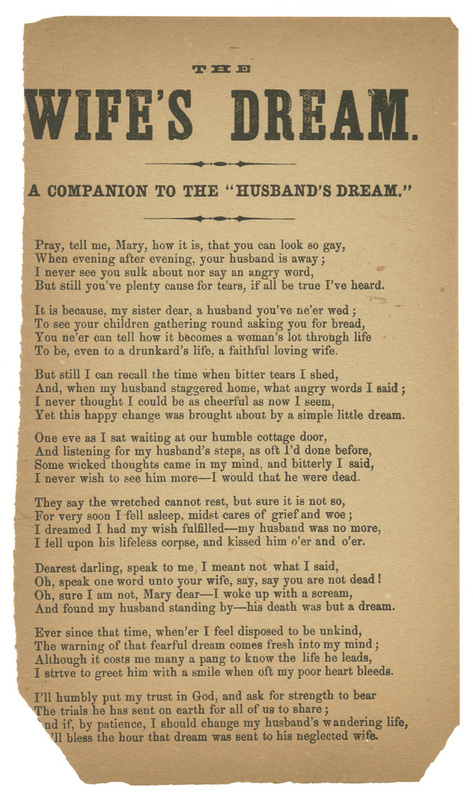 THE
WIFE'S DREAM.
A COMPANION TO THE "HUSBAND'S DREAM."
Pray, tell me, Mary, how it is, that you can look so gay,
When evening after evening, your husband is away;
I never see you sulk about nor say an angry word,
But still you've plenty cause for tears, if all be true I've heard.
It is because, my sister dear, a husband you've ne'er wed;
To see your children gathering round asking you for bread,
You ne'er can tell how it becomes a woman's lot through life
To be, even to a drunkard's life, a faithful loving wife.
But still I can recall the time when bitter tears I shed,
And, when my husband staggered home, what angry words I said;
I never thought I could be as cheerful as now I seem,
Yet this happy change was brought about by a simple little dream.
One eve as I sat waiting at our humble cottage door,
And listening for my husband's steps, as oft I'd done before,
Some wicked thoughts came in my mind, and bitterly I said,
I never wish to see him more—I would that he were dead.
They say the wretched cannot rest, but sure it is not so,
For very soon I fell asleep, midst cares of grief and woe;
I dreamed I had my wish fulfilled—my husband was no more,
I fell upon his lifeless corpse, and kissed him o'er and o'er.
Dearest darling, speak to me, I meant not what I said,
Oh, speak one word unto your wife, say, say you are not dead!
Oh, sure I am not, Mary dear—I woke up with a scream,
And found my husband standing by—his death was but a dream.
Ever since that time, when'er I feel disposed to be unkind,
The warning of that fearful dream comes fresh into my mind;
Although it costs me many a pang to know the life he leads,
I strtve to greet him with a smile when oft my poor heart bleeds.
I'll humbly put my trust in God, and ask for strength to bear
The trials he has sent on earth for all of us to share;
And if, by patience, I should change my husband's wandering life,
I'll bless the hour that dream was sent to his neglected wife.